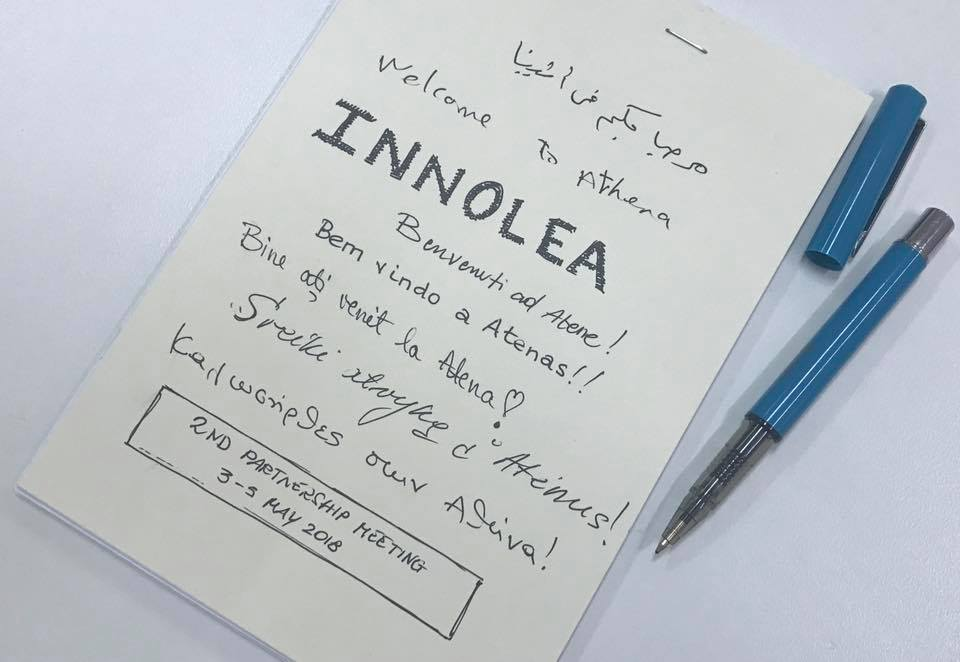 مرحبا بكم في أثينا
Welcome to Athena
INNOLEA
Benvenuti ad Atene!
Bem vindo a Atenas!!
Bine ați venit la Atena!
Sveiki į Atėnus!
Καλωσήρθες στην Αθήνα!
2ND PARTNERSHIP MEETING
3-5 MAY 2018